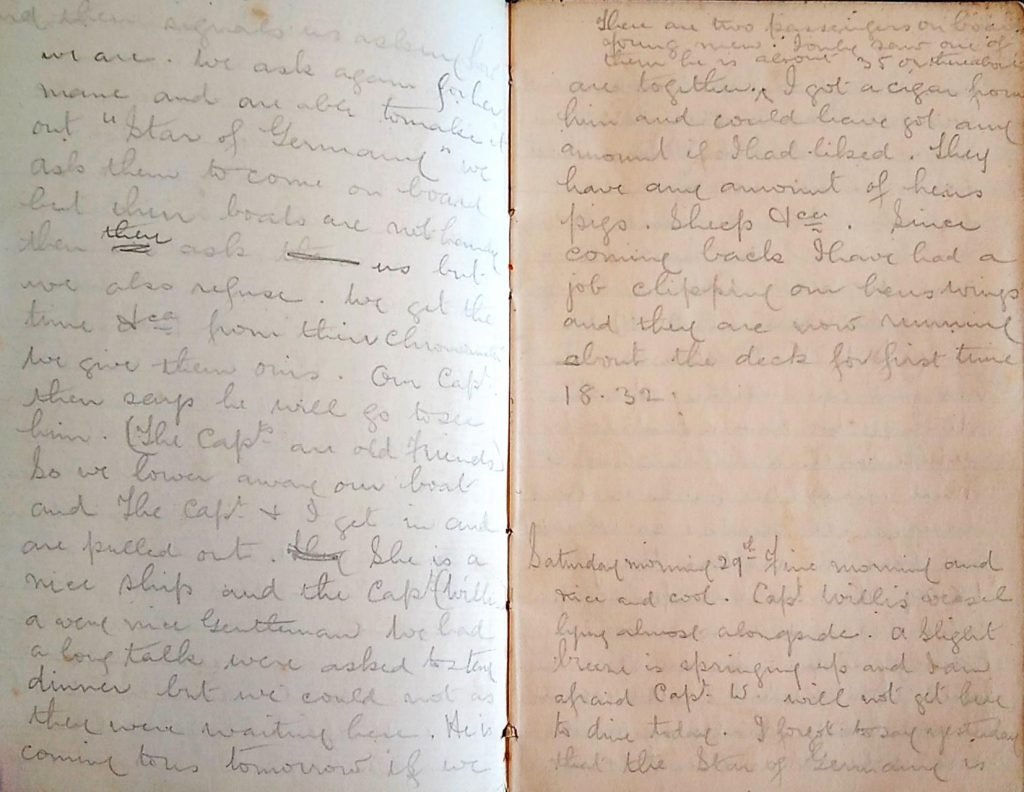 and then signals us asking how
we are. We ask again for her
name and are able to make it
out "Star of Germany" we
ask them to come on board
but their boats are not handy
then they ask us but
we also refuse. We get the
time &ca from their Chronometer
we give them ours. Our Capt.
then says he will go to see
him. (The Capts are old Friends)
So we lower away our boat
and The Capt. & I get in and
are pulled out. She is a
nice ship and the Capt (Willis
a very nice Gentleman We had
a long talk were asked to stay
dinner but we could not as
they were waiting here. He is
coming to us tomorrow if we
There are two passengers on board
young men. I only saw one of
them he is about 35 or thereabout
are together. I got a cigar from
him and could have got any
amount if I had liked. They
have any amount of hens
pigs. Sheep &ca. Since
coming back I have had a
job clipping our hens wings
and they are now running
about the deck for first time
18.32.
Saturday morning 29th Fine morning and
nice and cool. Capt Willis vessel
lying almost alongside. A slight
breeze is springing up and I am
afraid Capt. W. will not get here
to dine today. I forgot to say yesterday
that the Star of Germany is